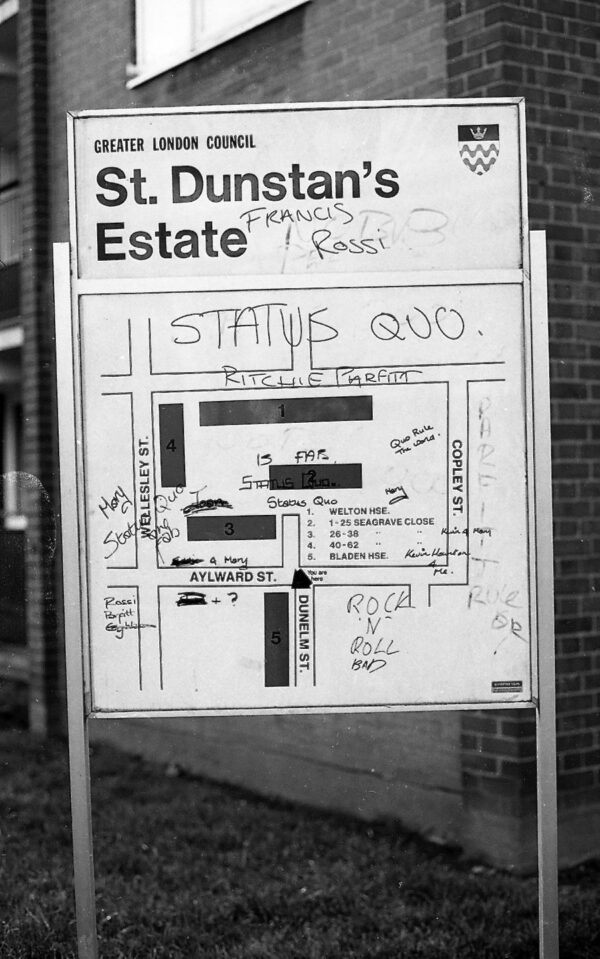 GREATER LONDON COUNCIL
St. Dunstan's
Estate
FRANCIS
ROSSI
STATUS QUO.
RITCHIE PARFITT
1
4
WELLESLEY ST.
COPLEY ST.
Quo Rule
The world.
IS FAB
2
STATUS QUO.
Status Quo
Mary
Mary
Status Quo
3
1. WELTON HSE.
2. 1-25 SEAGRAVE CLOSE
3. 26-38 " "
4. 40-62 " "
5. BLADEN HSE.
& Mary
Me.
PARFITT
RULE
OR
AYLWARD ST.
You are
here
+ ?
Rossi
5
DUNELM ST.
ROCK
'N'
ROLL